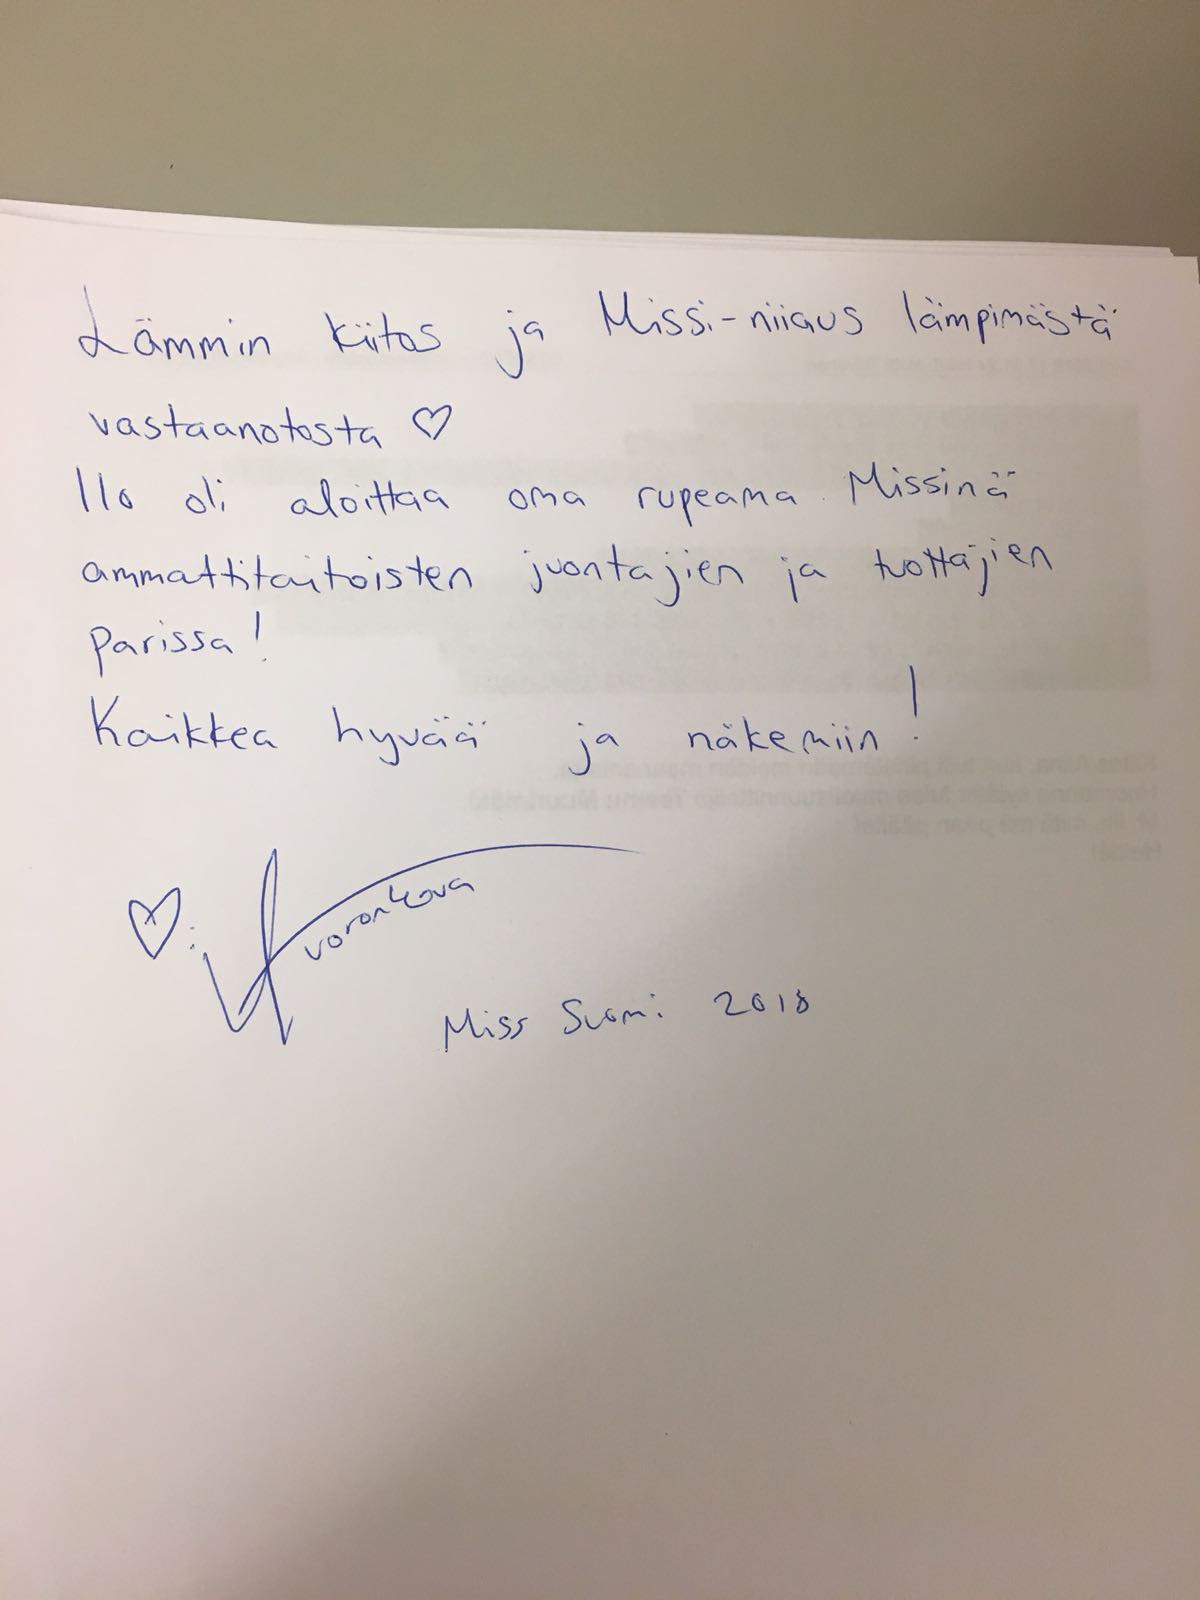 Lämmin kiitos ja Missi-niiaus lämpimästä
vastaanotosta ♡
Ilo oli aloittaa oma rupeama Missinä
ammattitaitoisten juontajien ja tuottajien
parissa!
Kaikkea hyvää ja näkemiin!
♡:
Voronkova
Miss Suomi 2018